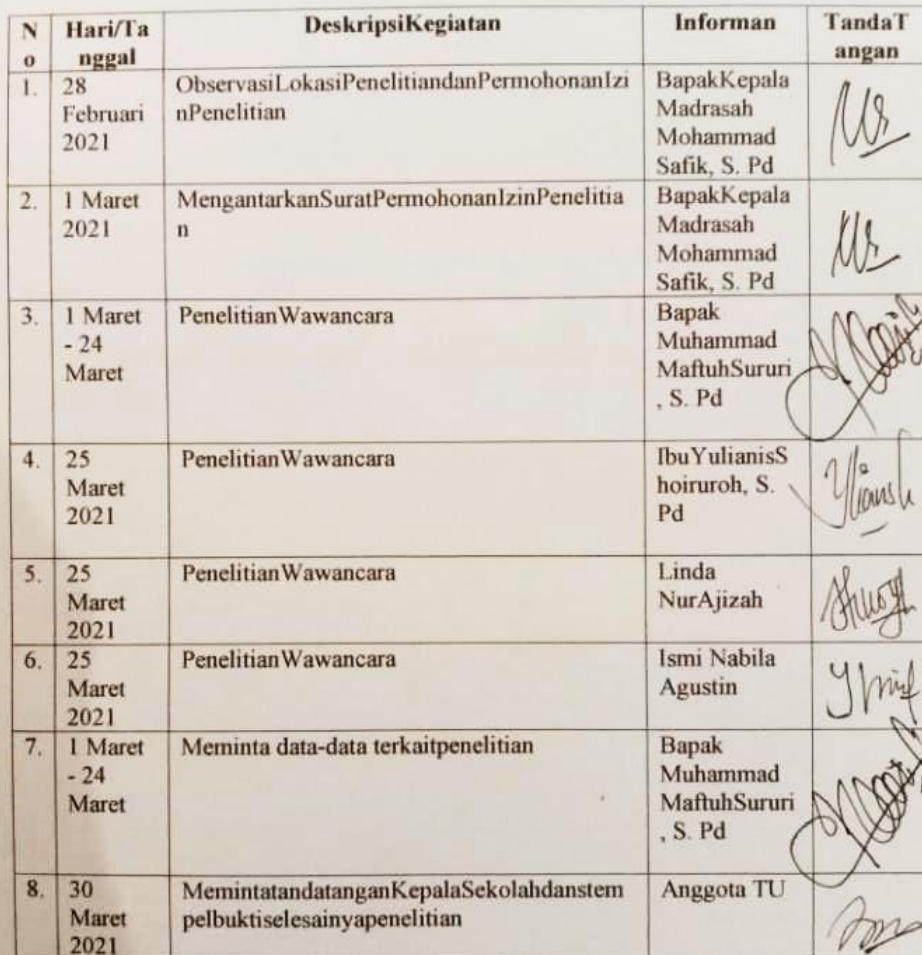 N
o
Hari/Ta
nggal
DeskripsiKegiatan
Informan
TandaT
angan
1.
28
Februari
2021
ObservasiLokasiPenelitiandanPermohonanIzi
nPenelitian
BapakKepala
Madrasah
Mohammad
Safik, S. Pd
2.
1 Maret
2021
MengantarkanSuratPermohonanIzinPenelitia
n
BapakKepala
Madrasah
Mohammad
Safik, S. Pd
3.
1 Maret
- 24
Maret
PenelitianWawancara
Bapak
Muhammad
MaftuhSururi
, S. Pd
4.
25
Maret
2021
PenelitianWawancara
IbuYulianisS
hoiruroh, S.
Pd
5.
25
Maret
2021
PenelitianWawancara
Linda
NurAjizah
6.
25
Maret
2021
PenelitianWawancara
Ismi Nabila
Agustin
7.
1 Maret
- 24
Maret
Meminta data-data terkaitpenelitian
Bapak
Muhammad
MaftuhSururi
, S. Pd
8.
30
Maret
2021
MemintatandatanganKepalaSekolahdanstem
pelbuktiselesainyapenelitian
Anggota TU